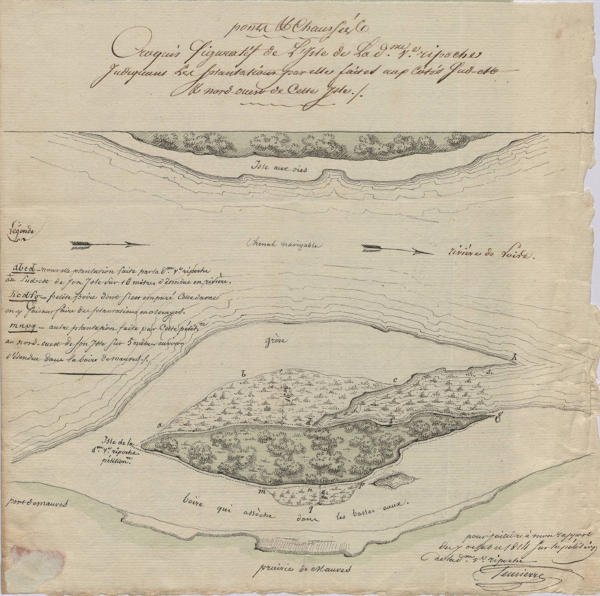 ponts & Chaussées
Croquis figuratif de L'Isle de La d.me V.e ripoche
Indiquant Les plantations par elle faites aux Côtés Sud-est
& nord-ouest de Cette Isle./.
Isle aux oies
Légende
Chenal navigable
rivière de Loire.
abcd — nouvelle plantation faite par la d.me V.e ripoche
au Sud-est de son Isle sur 16 mètres d'étendue en rivière.
petite boire dont s'est emparé Cette dame
en y faisant faire des plantations
mnpq — autre plantation faite par Cette
au nord-ouest de son Isle sur 5 mètres
d'étendue dans la boire de mauves./.
grève
h
b
c
d
a
g
Isle de la
d.me V.e ripoche
m
n
p
q
boire qui assèche dans les basses eaux.
port de mauves
prairie de Mauves
pour joindre à mon rapport
du 7 octobre 1814 sur la pétition
de la d.me V.e ripoche